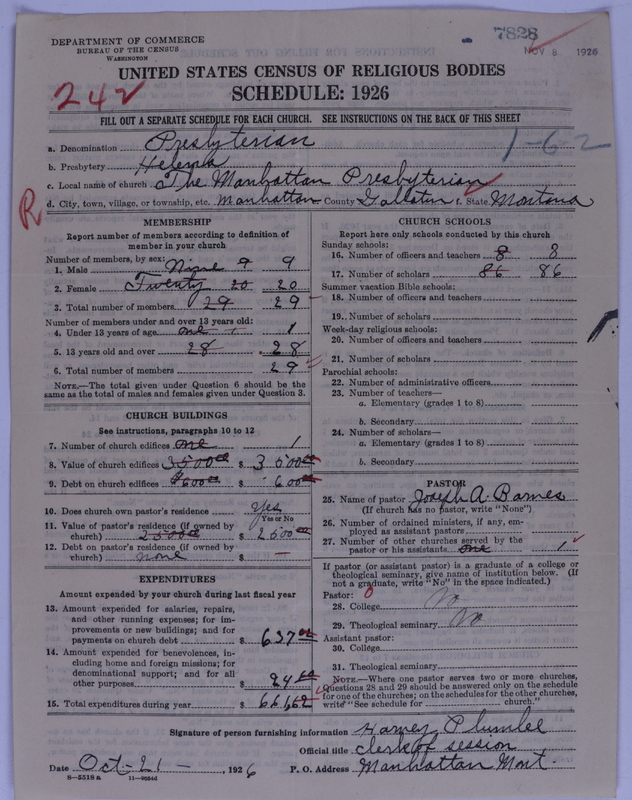 7828
NOV 8 1926
DEPARTMENT OF COMMERCE
BUREAU OF THE CENSUS
WASHINGTON
UNITED STATES CENSUS OF RELIGIOUS BODIES
242
SCHEDULE: 1926
FILL OUT A SEPARATE SCHEDULE FOR EACH CHURCH. SEE INSTRUCTIONS ON THE BACK OF THIS SHEET
1-62
a. Denomination Presbyterian
b. Presbytery Helena
c. Local name of church The Manhattan Presbyterian
d. City, town, village, or township, etc. Manhattan County Gallatin f. State Montana
R
MEMBERSHIP
Report number of members according to definition of
member in your church
Number of members, by sex:
1. Male Nine 9 9
2. Female Twenty 20 20
3. Total number of members 29 29
Number of members under and over 13 years old:
4. Under 13 years of age one 1
5. 13 years old and over 28 28
6. Total number of members 29
NOTE.—The total given under Question 6 should be the
same as the total of males and females given under Question 3.
CHURCH BUILDINGS
See instructions, paragraphs 10 to 12
7. Number of church edifices one 1
8. Value of church edifices 350000 $ 350000
9. Debt on church edifices $60000 $ 60000
10. Does church own pastor's residence Yes
Yes or No
11. Value of pastor's residence (if owned by
church) 250000 $ 250000
12. Debt on pastor's residence (if owned by
church) none $ —
EXPENDITURES
Amount expended by your church during last fiscal year
13. Amount expended for salaries, repairs,
and other running expenses; for im-
provements or new buildings; and for
payments on church debt $
14. Amount expended for benevolences, in-
cluding home and foreign missions; for
denominational support; and for all
other purposes $
15. Total expenditures during year $
CHURCH SCHOOLS
Report here only schools conducted by this church
Sunday schools:
16. Number of officers and teachers 8 8
17. Number of scholars 86 86
Summer vacation Bible schools:
18. Number of officers and teachers
19. Number of scholars
Week-day religious schools:
20. Number of officers and teachers
21. Number of scholars
Parochial schools:
22. Number of administrative officers
23. Number of teachers—
a. Elementary (grades 1 to 8)
b. Secondary
24. Number of scholars—
a. Elementary (grades 1 to 8)
b. Secondary
PASTOR
25. Name of pastor Joseph A. Barnes
(If church has no pastor, write "None")
26. Number of ordained ministers, if any, em-
ployed as assistant pastors
27. Number of other churches served by the
pastor or his assistants one 1
If pastor (or assistant pastor) is a graduate of a college or
theological seminary, give name of institution below. (If
not a graduate, write "No" in the space indicated.)
Pastor: 0
28. College No
29. Theological seminary No
Assistant pastor:
30. College
31. Theological seminary
NOTE.—Where one pastor serves two or more churches,
Questions 28 and 29 should be answered only on the schedule
for one of the churches; on the schedules for the other churches,
write "See schedule for church."
Signature of person furnishing information Harvey Plumlee
Official title clerk of session
Date Oct-21- , 1926 P. O. Address Manhattan Mont.
8-5518 a